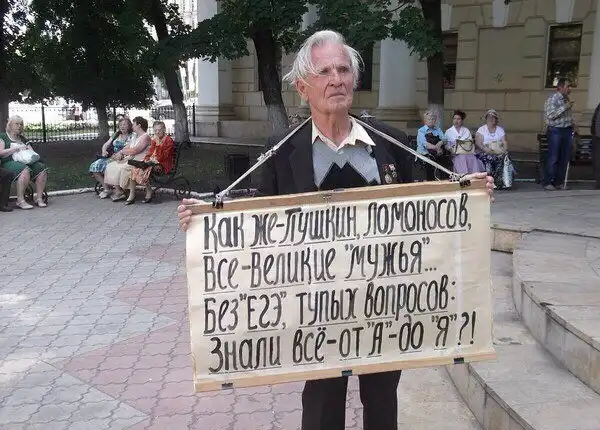 Как же-Пушкин, Ломоносов,
Все-Великие "Мужья"...
Без "ЕГЭ", тупых вопросов:
Знали всё-от "А"-до "Я"?!